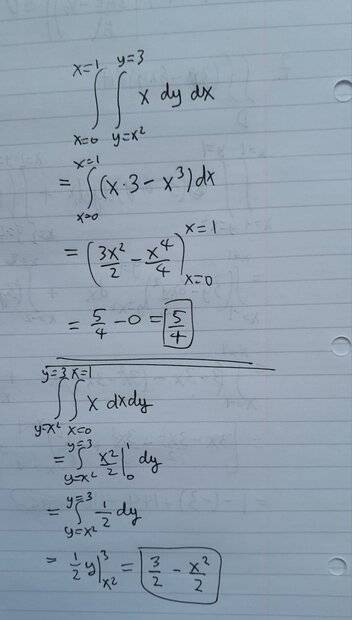 ∫_{x=0}^{x=1} ∫_{y=x²}^{y=3} x dy dx
= ∫_{x=0}^{x=1} (x·3 − x³) dx
= (3x²/2 − x⁴/4)_{x=0}^{x=1}
= 5/4 − 0 = 5/4
∫_{y=x²}^{y=3} ∫_{x=0}^{x=1} x dx dy
= ∫_{y=x²}^{y=3} x²/2 |_0^1 dy
= ∫_{y=x²}^{y=3} 1/2 dy
= 1/2 y |_{x²}^{3} = 3/2 − x²/2